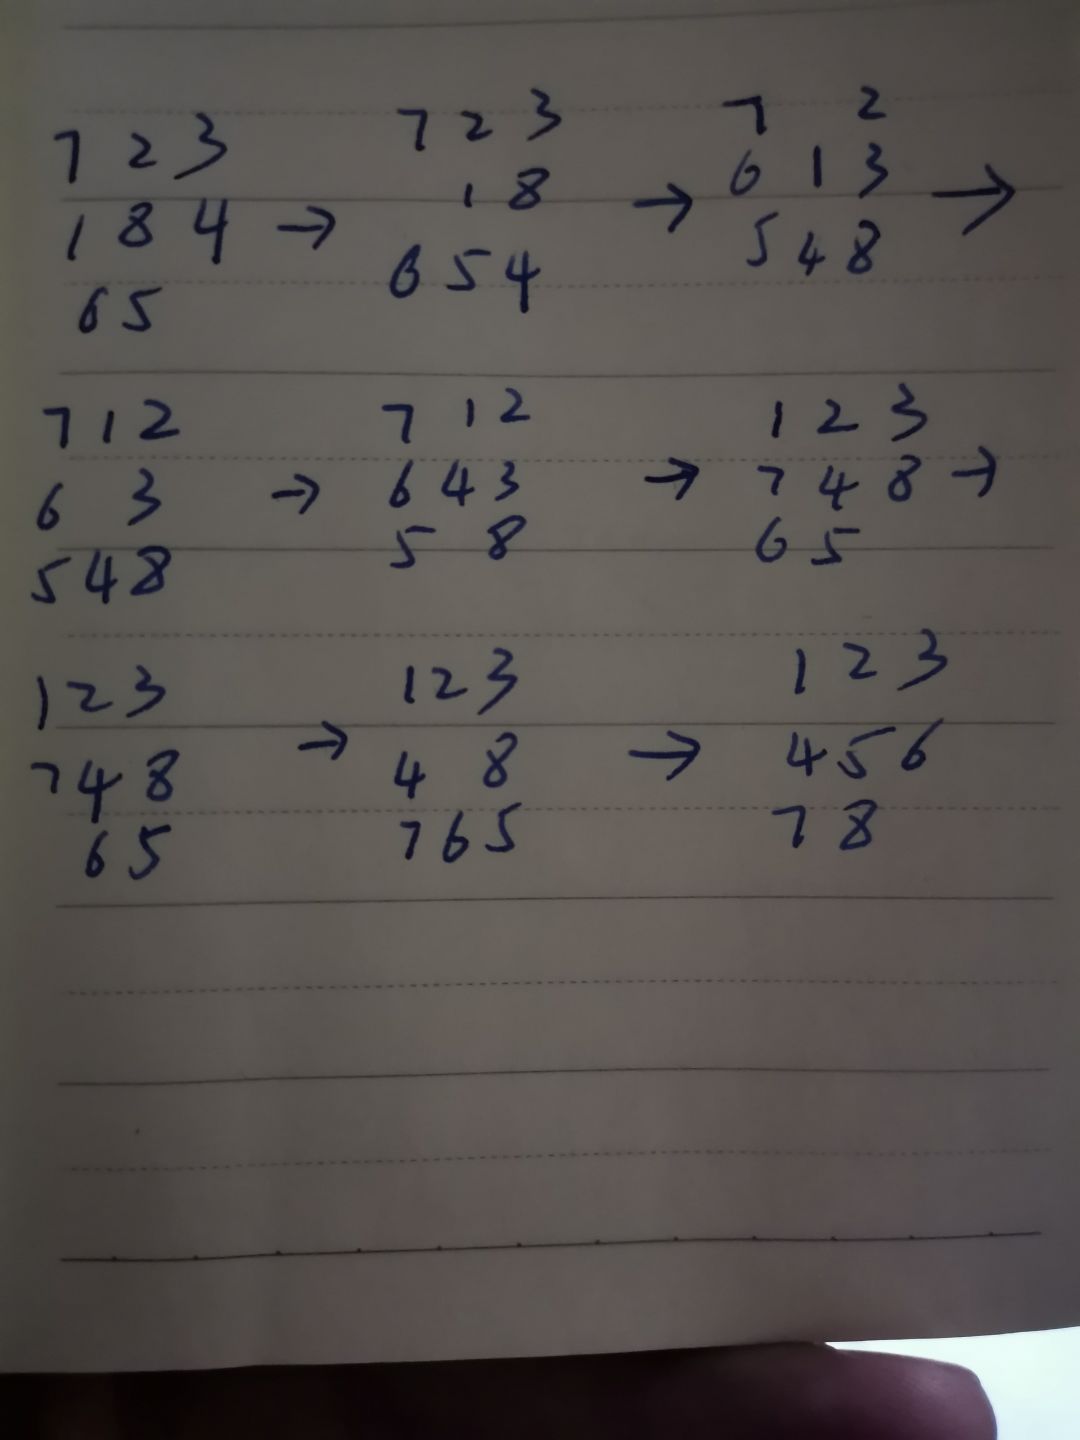 7 2 3     7 2 3     7   2
1 8 4 →     1 8 →   6 1 3 →
6 5     6 5 4     5 4 8
7 1 2     7 1 2     1 2 3
6   3 → 6 4 3 → 7 4 8 →
5 4 8     5   8     6 5
1 2 3     1 2 3     1 2 3
7 4 8 → 4   8 → 4 5 6
  6 5     7 6 5     7 8